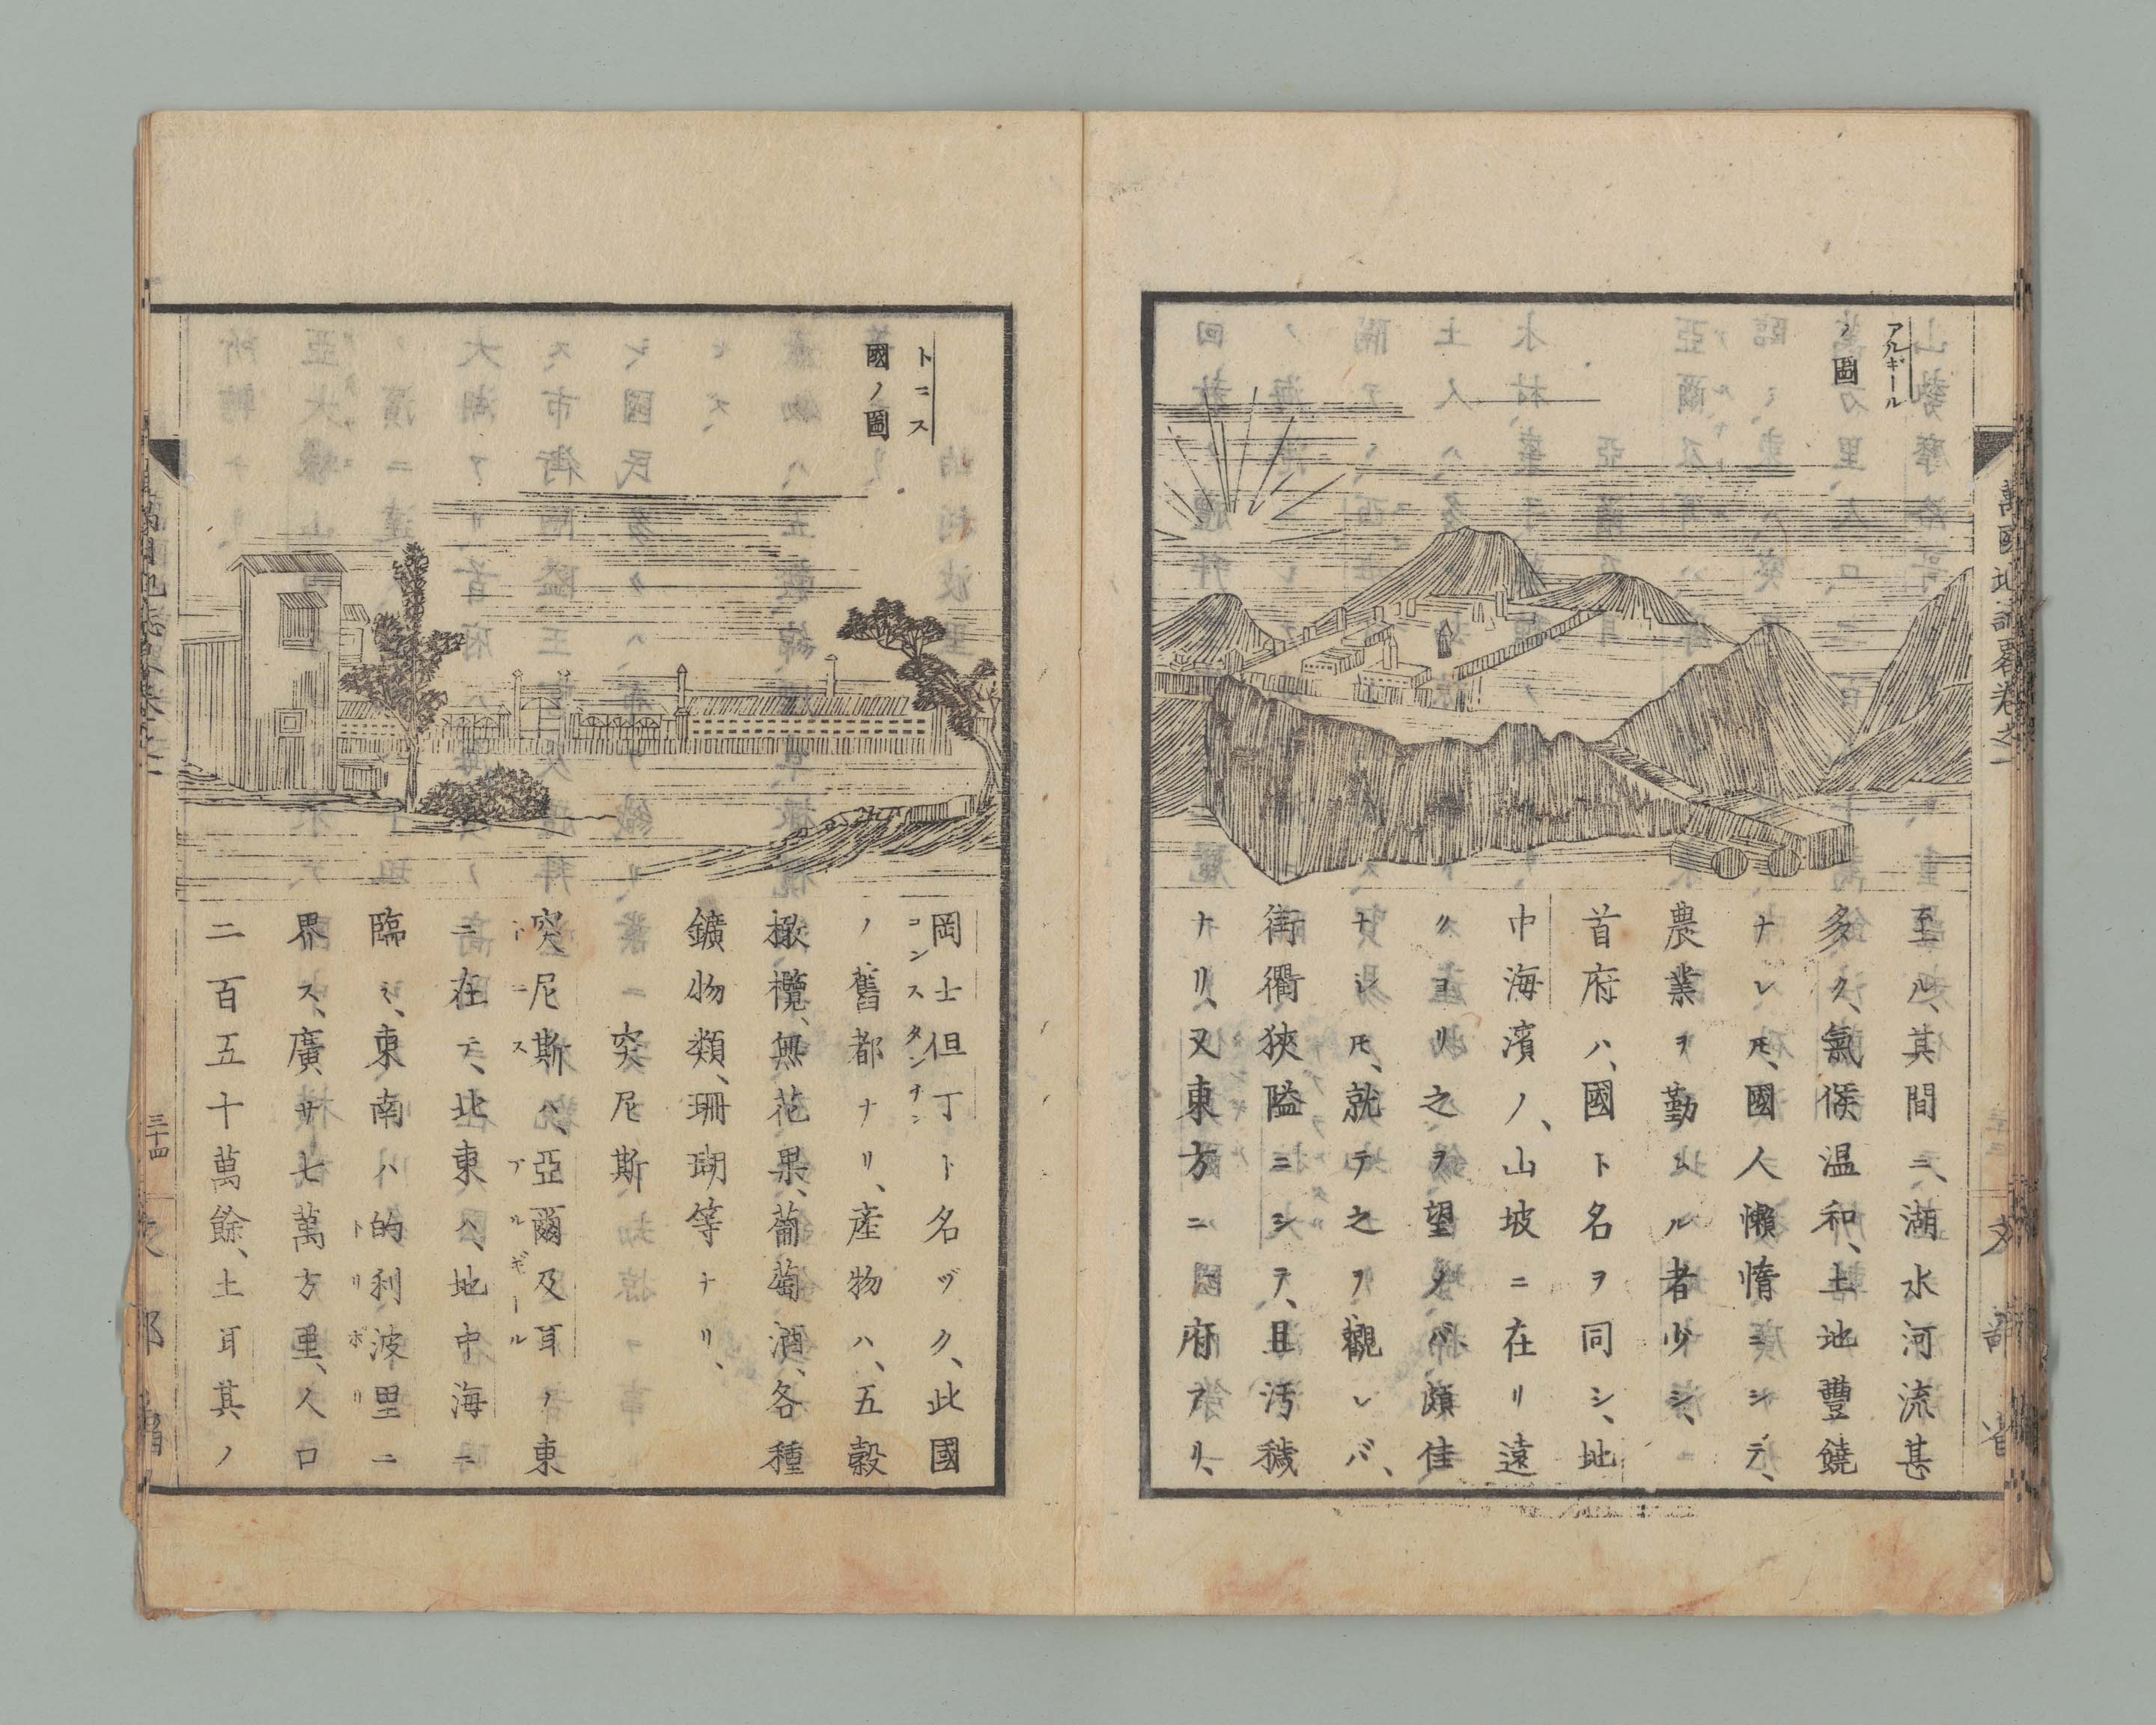 アルギール
ノ圖
至ル、其間ニ、湖水河流甚
多ク、氣候温和、土地豐饒
ナレ𪜈、國人懶惰ニシテ、
農業ヲ勤ムル者少シ、
首府ハ、國ト名ヲ同シ、地
中海濱ノ、山坡ニ在リ遠
クヨリ之ヲ望メバ、頗佳
ナレ𪜈、就テ之ヲ觀レバ、
街衢狹隘ニシテ、且汚穢
ナリ、又東方ニ國府アリ、
萬國地誌畧卷之二
文部省
トニス
國ノ圖
岡士但丁ト名ヅク、此國
コンスタンチン
ノ舊都ナリ、産物ハ、五穀
橄欖、無花果、葡萄酒、各種
鑛物類、珊瑚等ナリ、
突尼斯
突尼斯ハ、亞爾及耳ノ東
トニス アルギール
ニ在テ、北東ハ、地中海ニ
臨ミ、東南ハ的利波里ニ
トリポリ
界ス、廣サ七萬方里、人口
二百五十萬餘、土耳其ノ
三十四